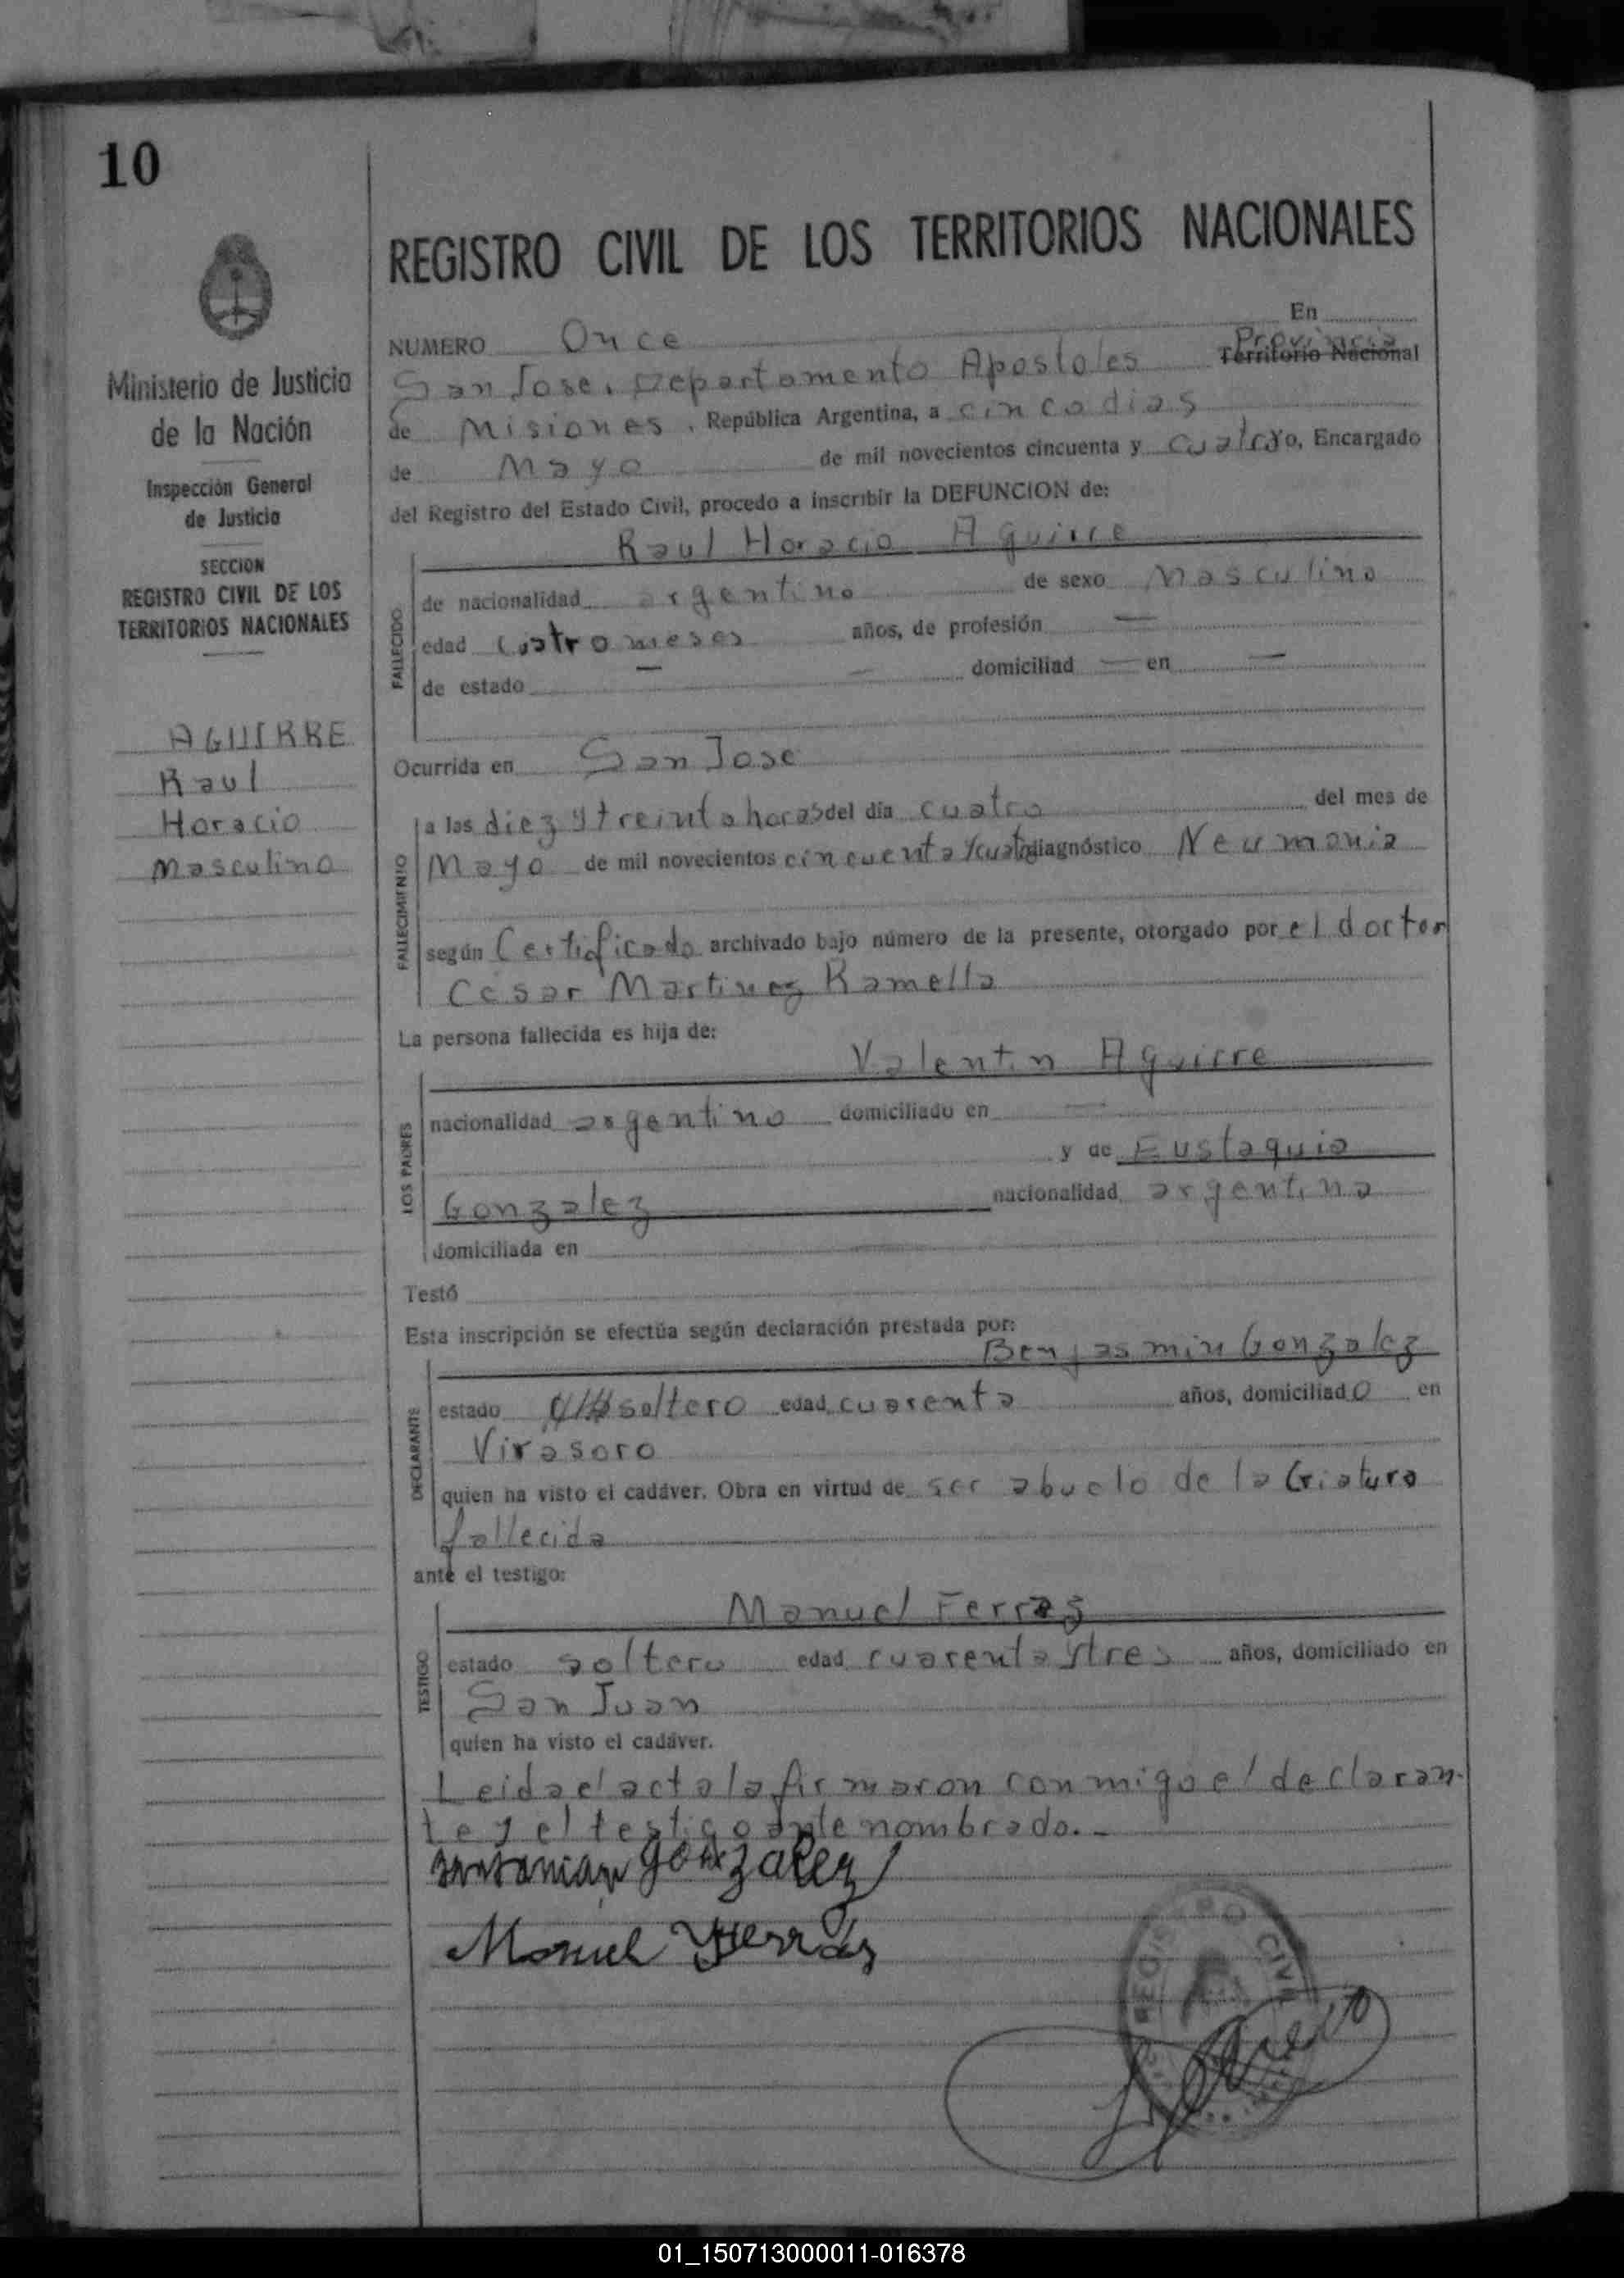 10
Ministerio de Justicia
de la Nación
Inspección General
de Justicia
SECCION
REGISTRO CIVIL DE LOS
TERRITORIOS NACIONALES
AGUIRRE
Raul
Horacio
Masculino
REGISTRO CIVIL DE LOS TERRITORIOS NACIONALES
NUMERO Once En
San Jose, Departamento Apostoles Provincia Territorio Nacional
de Misiones, República Argentina, a cinco dias
de Mayo de mil novecientos cincuenta y cuatro Yo, Encargado
del Registro del Estado Civil, procedo a inscribir la DEFUNCION de:
Raul Horacio Aguirre
FALLECIDO
de nacionalidad argentino de sexo Masculino
edad cuatro meses años, de profesión —
de estado — — domiciliad — en —
Ocurrida en San Jose
FALLECIMIENTO
a las diez y treinta horas del día cuatro del mes de
Mayo de mil novecientos cincuenta y cuatro diagnóstico Neumonia
según Certificado archivado bajo número de la presente, otorgado por el doctor
Cesar Martinez Ramella
La persona fallecida es hija de:
LOS PADRES
Valentin Aguirre
nacionalidad argentino domiciliado en —
y de Eustaquia
Gonzalez nacionalidad argentina
domiciliada en
Testó
Esta inscripción se efectúa según declaración prestada por:
DECLARANTE
Benjasmin Gonzalez
estado soltero edad cuarenta años, domiciliado en
Virasoro
quien ha visto el cadáver. Obra en virtud de ser abuelo de la Criatura
fallecida
ante el testigo:
TESTIGO
Manuel Ferraz
estado soltero edad cuarenta y tres años, domiciliado en
San Juan
quien ha visto el cadáver.
Leida el acta la firmaron conmigo el declaran-
te y el testigo ante nombrado.-
gonzalez
Manuel Ferraz
REGISTRO CIVIL
01_150713000011-016378